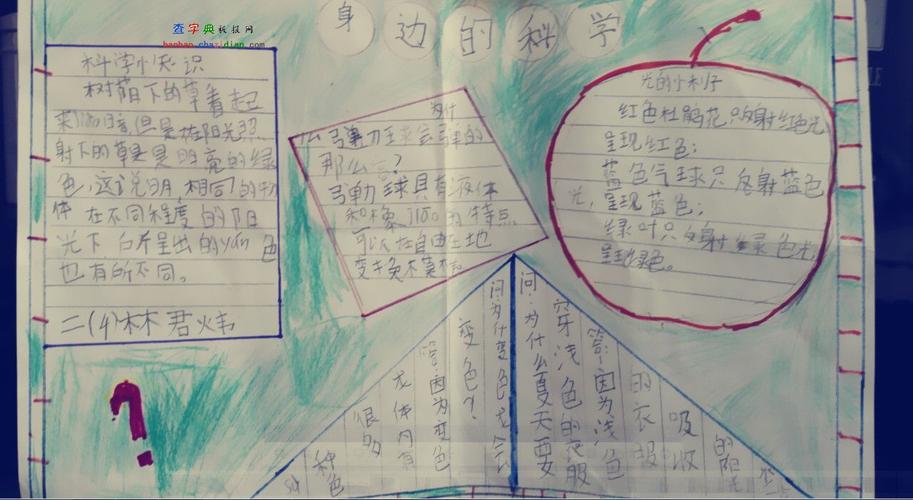 查字典板报网
banbao.chazidian.com
身边的科学
科学小知识
树荫下的草看起
来阴暗,但是在阳光照
射下的草是明亮的绿
色,这说明,相同的物
体在不同程度的阳
光下 呈出的 色
也有所不同。
二(4)林君炜
为什
么弹力球会弹的
那么 ?
弹力球具有液体
和橡 的特点
可以在自由土地
变换模样
光的小
红色杜鹃花只反射红色光,
呈现红色;
蓝色气球只反射蓝色
光,呈现蓝色;
绿叶只反射绿色光,
呈现绿色。
问:为什么变色龙会
变色?
答:因为变色
龙体内有
很多
种色
问:为什么夏天要
穿浅色的衣服
答:因为浅色
的衣服
吸收
的阳光